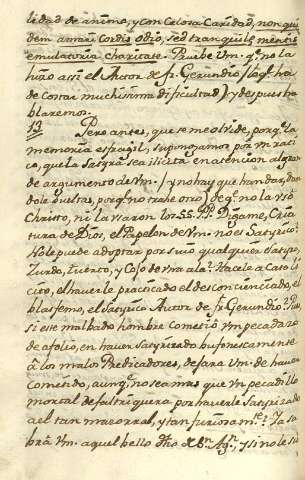 lidad de animo, y con Celosa Caridad, non qui
dem amari Cordis odio, sed tranquile mentis
emulatoria charitate. Pruebe Vm. qe. no la
hizo assi el Autor de fr. Gerundio (loqe. ha
de costar muchissima dificultad) y despues ha
blaremos.
13
Pero antes, que se me olvide, porqe. la
memoria es fragil, supongamos por un ra
cio, que la Satyra sea ilicita en atencion al gran
de argumento de Vm. (y no hay que han dar, dan
dola bueltas, porqe. no trahe otro) de qe. no la usó
Christo, ni la usaron los SS. Ps. Digame, Cria
tura de Dios, el Papelon de Vm. no es Satyrico?
No le puede adoptar por suio qualquier Satyro
Zurdo, tuerto, y Cojo de una ala? Hacele a Caso li
cito, el haverle practicado el desconcienciado, el
blasfemo, el Satyrico Autor de fr. Gerundio? Pues
si este malbado hombre cometió un pecadazo
de afolio, en haver Satyrizado bufonescamente
â los malos Predicadores, dejara Vm. de haver
cometido, aunqe. no sea mas que un pecadillo
mortal de faltriquera por haverle Satyrizado
a el tan majorral, y tan furiosamte.? Ya sa
brá Vm. aquel bello dho de Sn. Agn., y si no le sa